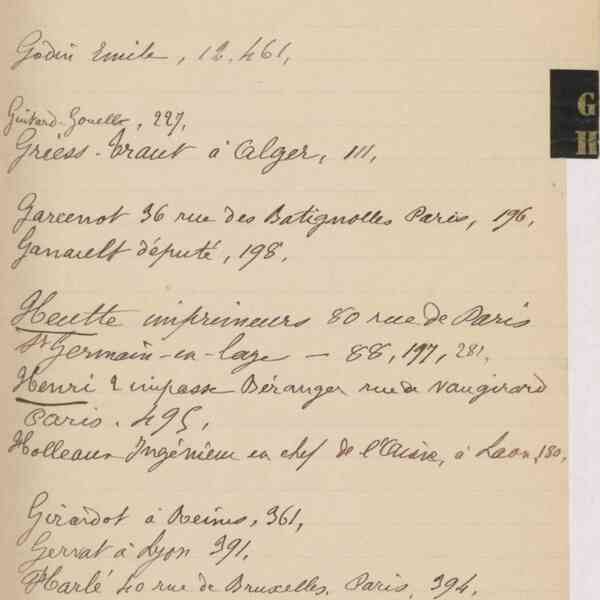 Godin Emile, 12, 461,
G
H
Guitard-Gouello, 227,
Griess-Traut à Alger, 111,
Garcenot 36 rue des Batignolles Paris, 196,
Ganault député, 198,
Heutte imprimeurs 80 rue de Paris
St Germain-en-laye - 88, 197, 281,
Henri 2 impasse Béranger rue de Vaugirard
Paris. 495,
Holleaux Ingénieur en chef de l'Aisne, à Laon, 150,
Girardot à Reims, 361,
Gervat à Lyon 391,
Harlé 40 rue de Bruxelles. Paris, 394,